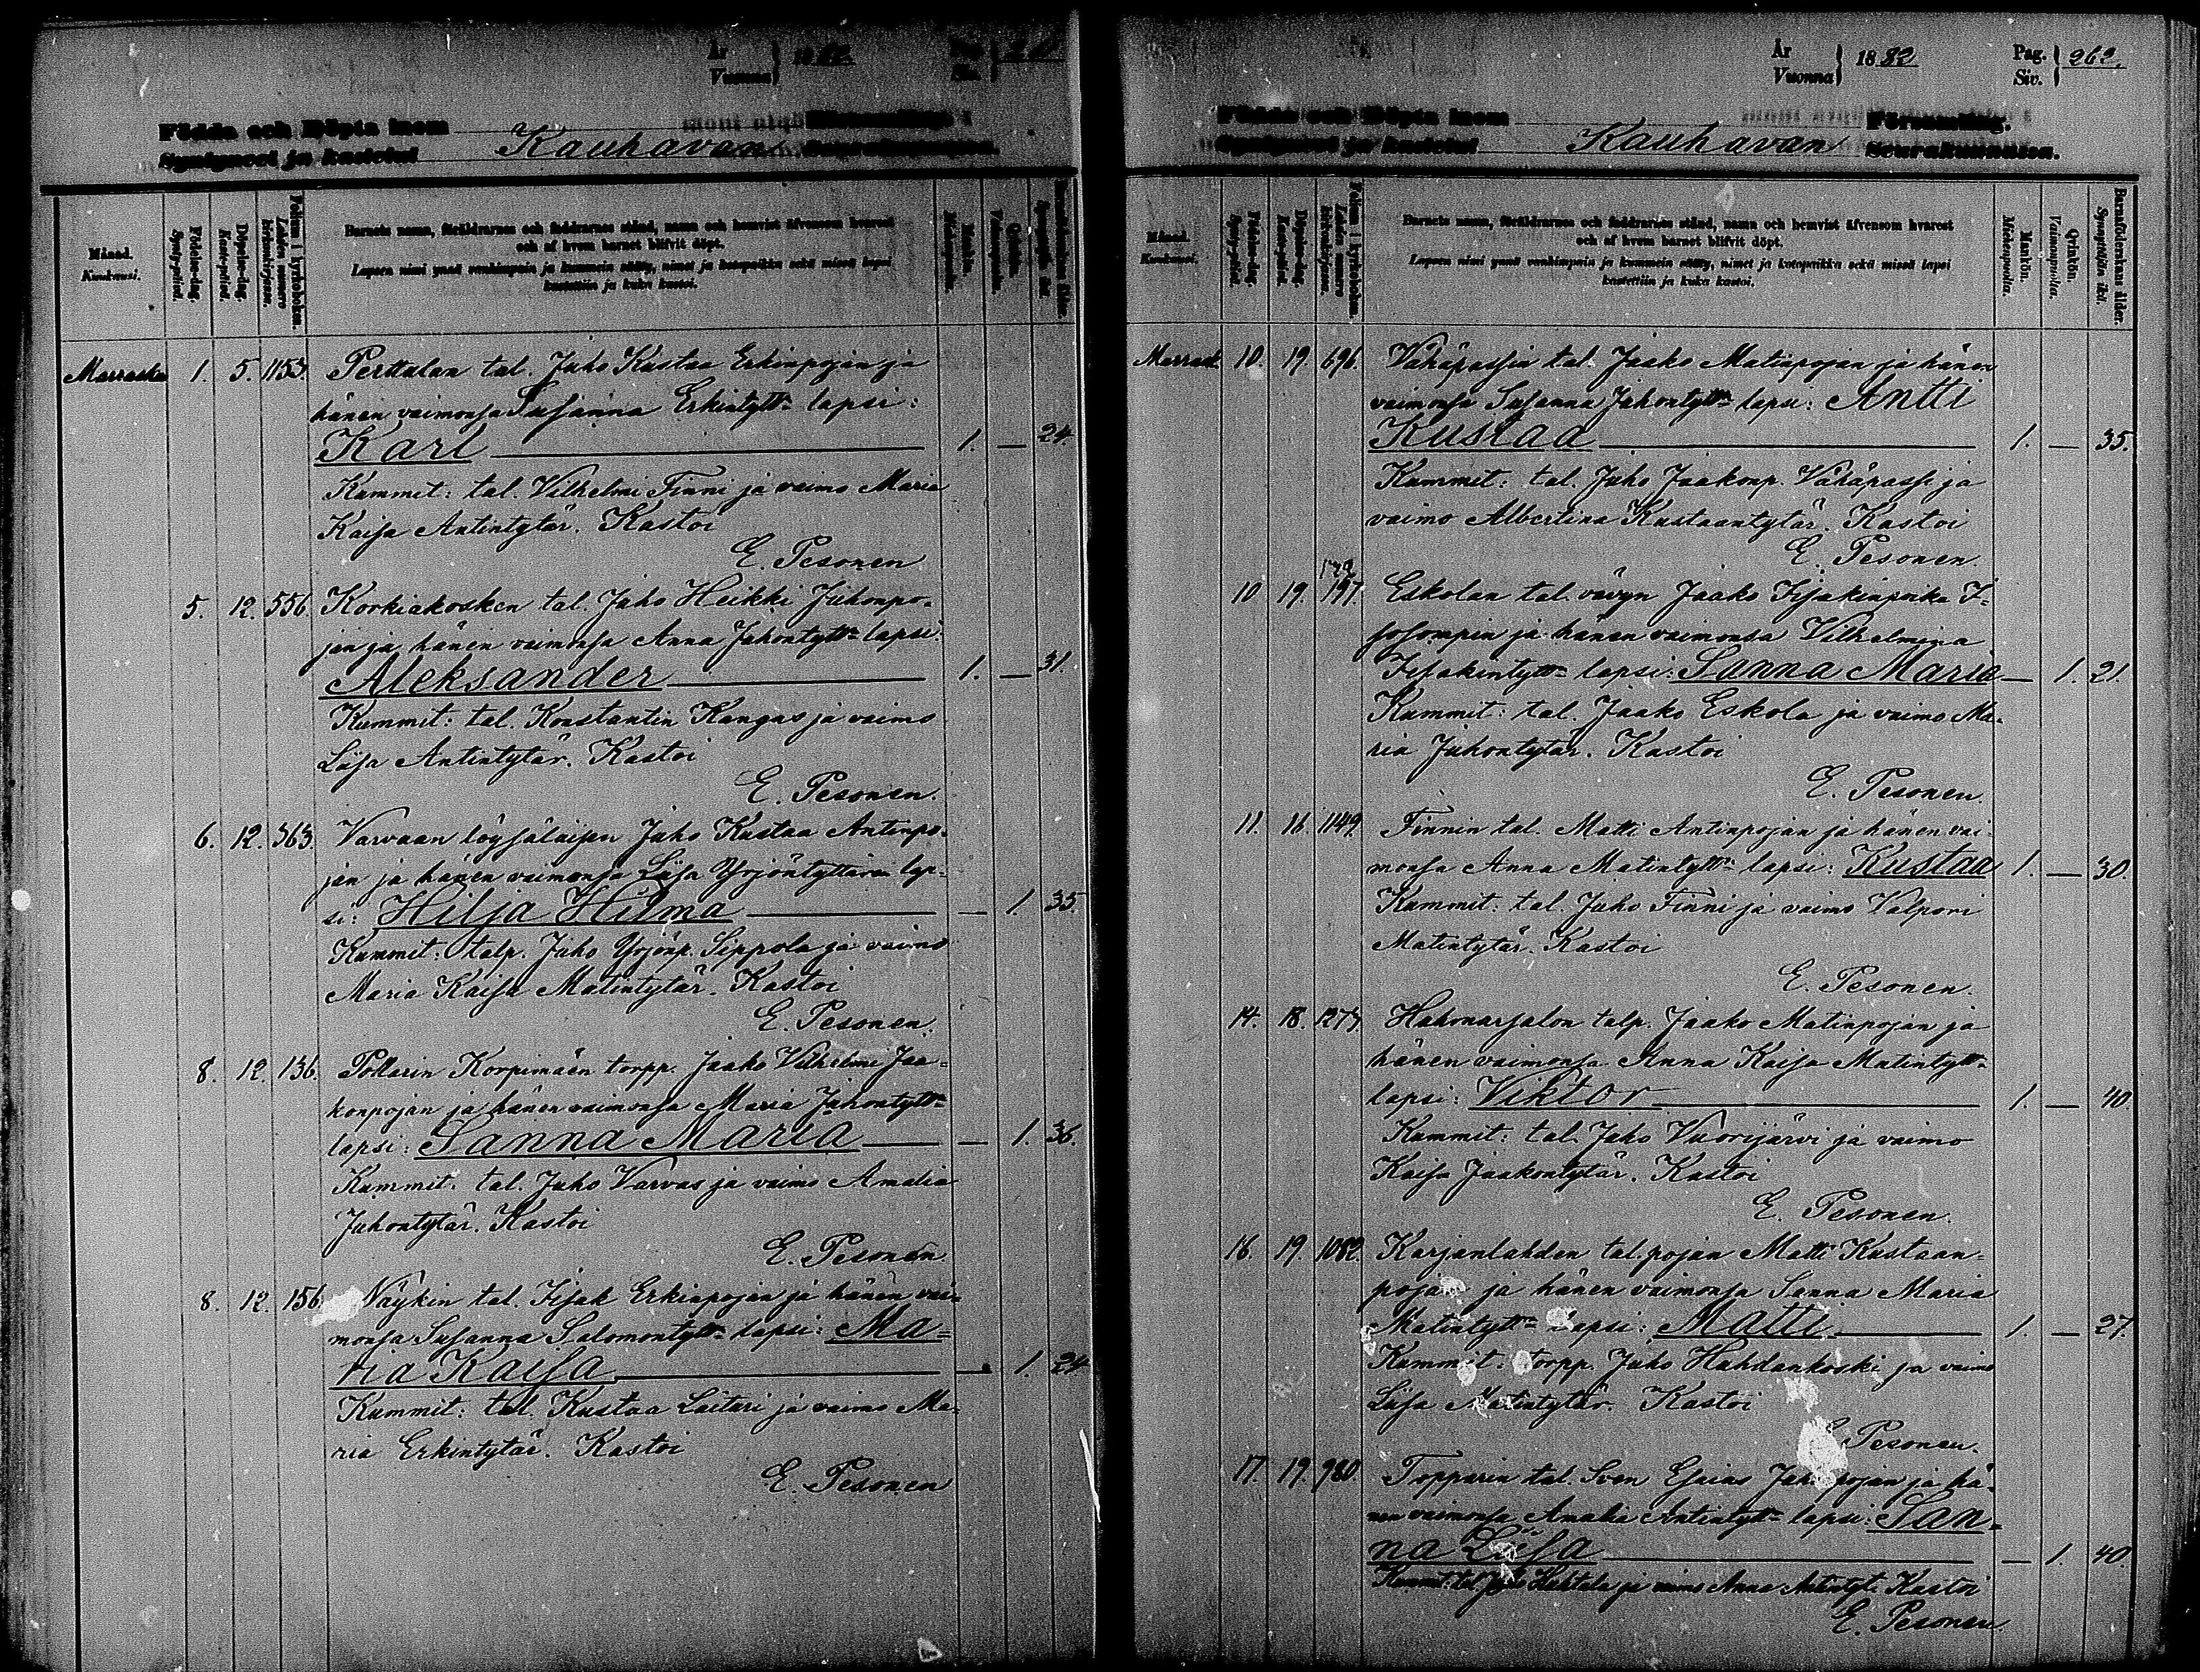 År
Vuonna } 1882 Pag.
Siv. }
Födda och Döpta inom Kauhavan
Syntyneet ja kastetut
Månad.
Kuukausi.
Födelse-dag.
Synty-päivä.
Döpelse-dag.
Kaste-päivä.
Folium i kyrkoboken.
Lehden numero kirkonkirjassa.
Barnets namn, föräldrarnes och faddrarnes stånd, namn och hemvist äfvensom hvarest
och af hvem barnet blifvit döpt.
Lapsen nimi ynnä vanhimpain ja kummein sääty, nimet ja kotopaikka sekä missä lapsi
kastettiin ja kuka kastoi.
Mankön.
Miehenpuolia.
Qvinkön.
Vaimonpuolia.
Marrasku 1. 5. 1153. Perttulan tal. Juho Kustaa Erkinpojan ja
hänen vaimonsa Susanna Erkintytt:n lapsi:
Karl 1. — 24.
Kummit: tal. Vilhelmi Finni ja vaimo Maria
Kaisa Antintytär. Kastoi
E. Pesonen
5. 12. 556. Korkiakosken tal. Juho Heikki Juhonpo-
jan ja hänen vaimonsa Anna Juhontytt:n lapsi:
Aleksander 1. — 31.
Kummit: tal. Konstantin Kangas ja vaimo
Liisa Antintytär. Kastoi
E. Pesonen.
6. 12. 363. Varvaan löysäläisen Juho Kustaa Antinpo-
jan ja hänen vaimonsa Liisa Yrjöntyttären lap-
si: Hilja Hilma — 1. 35.
Kummit: talp. Juho Yrjönp. Sippola ja vaimo
Maria Kaisa Matintytär. Kastoi
E. Pesonen.
8. 12. 136. Pollarin Korpimäen torpp. Jaako Vilhelmi Jaa-
konpojan ja hänen vaimonsa Maria Juhontytt:n
lapsi: Sanna Maria — 1. 36.
Kummit: tal. Juho Varvas ja vaimo Amalia
Juhontytär. Kastoi
E. Pesonen.
8. 12. 156. Näykin tal. Iisak Erkinpojan ja hänen vai-
monsa Susanna Salomontytt:n lapsi: Ma-
ria Kaisa — 1. 24
Kummit: tal. Kustaa Laituri ja vaimo Ma-
ria Erkintytär. Kastoi
E. Pesonen
År
Vuonna } 1882 Pag.
Siv. } 262.
Födda och Döpta inom Kauhavan Församling.
Syntyneet ja kastetut Seurakunnassa.
Månad.
Kuukausi.
Födelse-dag.
Synty-päivä.
Döpelse-dag.
Kaste-päivä.
Folium i kyrkoboken.
Lehden numero kirkonkirjassa.
Barnets namn, föräldrarnes och faddrarnes stånd, namn och hemvist äfvensom hvarest
och af hvem barnet blifvit döpt.
Lapsen nimi ynnä vanhimpain ja kummein sääty, nimet ja kotopaikka sekä missä lapsi
kastettiin ja kuka kastoi.
Mankön.
Miehenpuolia.
Qvinkön.
Vaimonpuolia.
Barnaföderskans ålder.
Synnyttäjän ikä.
Marrask. 10. 19. 696. Vähäpassin tal. Jaako Matinpojan ja hänen
vaimonsa Susanna Juhontytt:n lapsi: Antti
Kustaa 1. — 35.
Kummit: tal. Juho Jaakonp. Vähäpassi ja
vaimo Albertina Kustaantytär. Kastoi
E. Pesonen.
10. 19. 197. Eskolan tal. vävyn Jaako Iisakinpoika I-
sosompin ja hänen vaimonsa Vilhelmina
Iisakintytt:n lapsi: Sanna Maria — 1. 21.
Kummit: tal. Jaako Eskola ja vaimo Ma-
ria Juhontytär. Kastoi
E. Pesonen.
11. 16. 1149. Finnin tal. Matti Antinpojan ja hänen vai-
monsa Anna Matintytt:n lapsi: Kustaa 1. — 30.
Kummit: tal. Juho Finni ja vaimo Valpori
Matintytär. Kastoi
E. Pesonen.
14. 18. 1273. talp. Jaako Matinpojan ja
hänen vaimonsa Anna Kaisa Matintytt:n
lapsi: Viktor 1. — 40.
Kummit: tal. Juho Vuorijärvi ja vaimo
Kaisa Jaakontytär. Kastoi
E. Pesonen.
16. 19. 1082. Karjanlahden tal. pojan Matti Kustaan-
pojan ja hänen vaimonsa Sanna Maria
Matintytt:n lapsi: Matti 1. — 27.
Kummit: torpp. Juho Hahdankoski ja vaimo
Liisa Matintytär. Kastoi
E. Pesonen.
17. 19. 980. Topparin tal. Sven Esaias pojan ja hä-
nen vaimonsa Amalia Antintytt:n lapsi: San-
na Liisa — 1. 40.
Kummit: tal. Huhtala ja vaimo Anna Antintyt. Kastoi
E. Pesonen